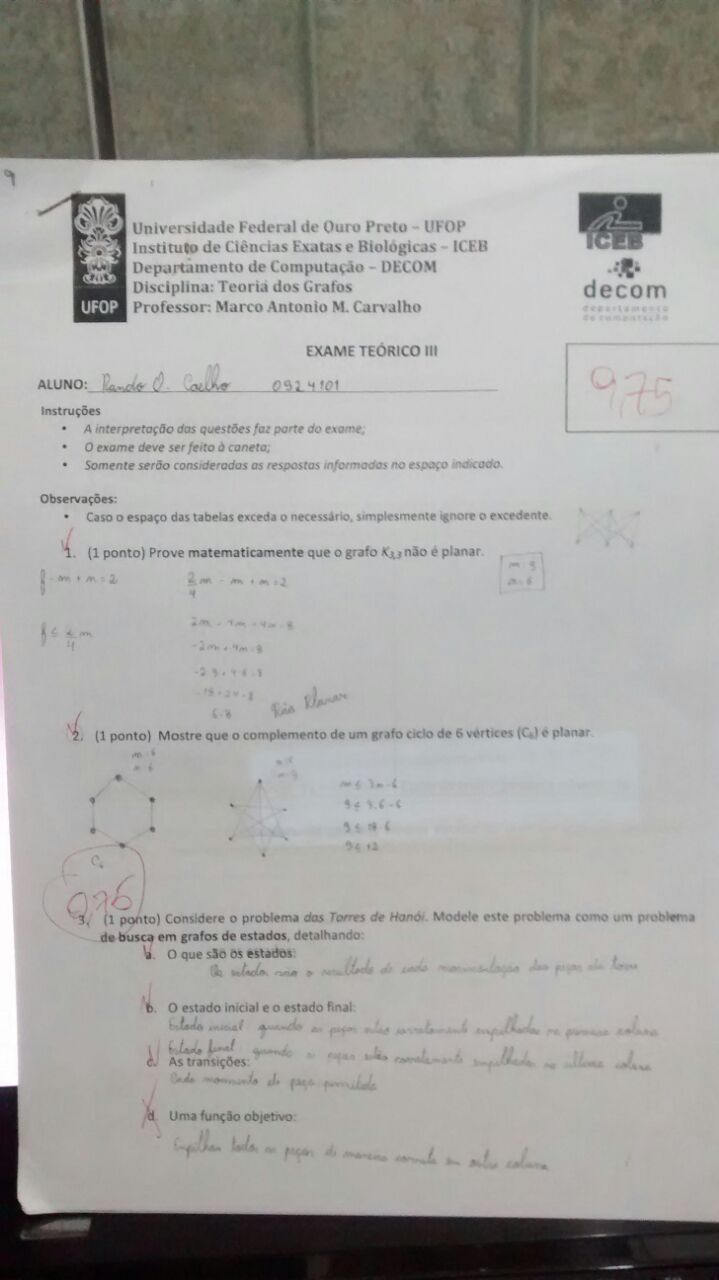 9
Universidade Federal de Ouro Preto – UFOP
Instituto de Ciências Exatas e Biológicas – ICEB
Departamento de Computação – DECOM
Disciplina: Teoria dos Grafos
Professor: Marco Antonio M. Carvalho
UFOP
ICEB
decom
departamento
de computação
EXAME TEÓRICO III
ALUNO: O. Coelho 0924101
9,75
Instruções
• A interpretação das questões faz parte do exame;
• O exame deve ser feito à caneta;
• Somente serão consideradas as respostas informadas no espaço indicado.
Observações:
• Caso o espaço das tabelas exceda o necessário, simplesmente ignore o excedente.
1. (1 ponto) Prove matematicamente que o grafo K3,3 não é planar.
m = 9
n = 6
f - m + n = 2
2/4 m - m + n = 2
f ≤ 2/4 m
2m - 4m + 4n = 8
-2m + 4n = 8
-2.9 + 4.6 = 8
-18 + 24 = 8
6 = 8 Não Planar
2. (1 ponto) Mostre que o complemento de um grafo ciclo de 6 vértices (C6) é planar.
m = 6
n = 6
m ≤ 3n - 6
9 ≤ 3.6 - 6
9 ≤ 18 - 6
9 ≤ 12
C6
0,75
3. (1 ponto) Considere o problema das Torres de Hanói. Modele este problema como um problema
de busca em grafos de estados, detalhando:
a. O que são os estados:
Os estados são o resultado de cada movimentação das peças da torre
b. O estado inicial e o estado final:
Estado inicial quando as peças estão corretamente empilhadas na primeira coluna
Estado final quando as peças estão corretamente empilhadas na ultima coluna
c. As transições:
Cada movimento de peça permitido
d. Uma função objetivo:
Empilhar todas as peças de maneira correta em outra coluna